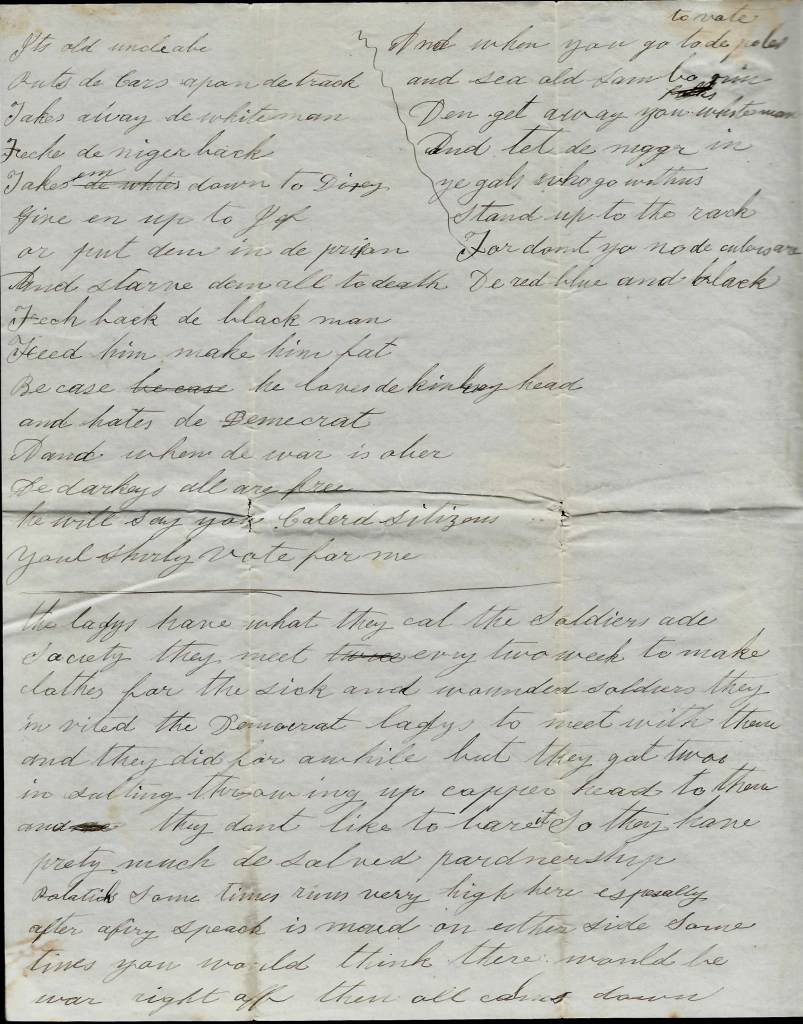 Its old uncle abe
Puts de Cars apon de track
Takes away de white man
Feche de niger back
Takes em de whites down to Dixey
Give en up to Jef
or put dem in de prison
And starve dem all to death
Fech back de black man
Feed him make him fat
Be case he case he loves de kinkey head
and hates de Demecrat
And when de war is ober
De darkeys all are free
he will say you Calerd sitizens
Youl shurly Vote for me
to vote
And when you go to de poles
and sea old Sambo
folks
Den get away you white man
And let de nigga in
ye gals who go with us
Stand up to the rack
For dont yo no de culors are
De red blue and black
the ladys have what they cal the Soldiers ade
Society they meet twice evry two week to make
clothes for the sick and wounded soldiers they
in vited the Democrat ladys to meet with them
and they did for awhile but they got two
in sulting throwing up copper head to them
and they dont like to bare it So they have
prety much de solved pardnership
Polaticks Some times runs very high here espesally
after afiry speach is maid on either side Some
times you would think there would be
war right off then all calms down